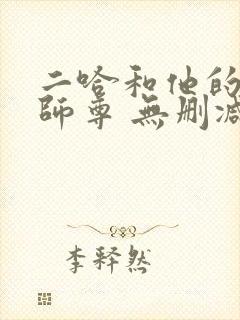 二哈和他的
師尊 無删减
李釋然